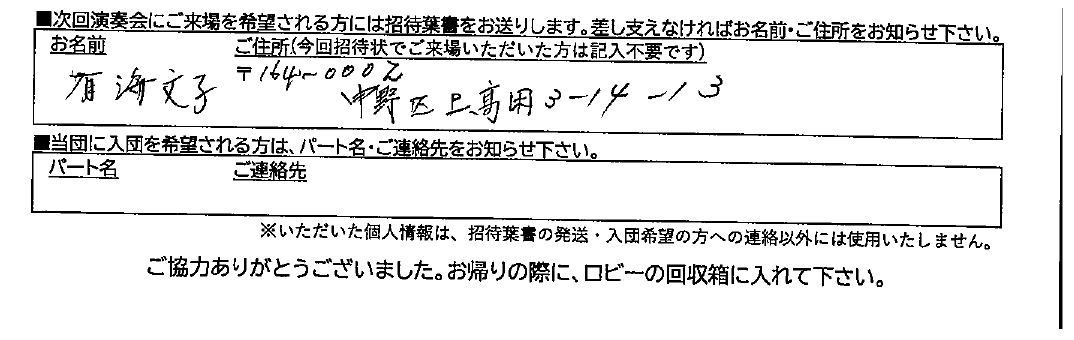 ■次回演奏会にご来場を希望される方には招待葉書をお送りします。差し支えなければお名前・ご住所をお知らせ下さい。
お名前 ご住所(今回招待状でご来場いただいた方は記入不要です)
〒164-0002
有海文子 中野区上高田3-14-13
■当団に入団を希望される方は、パート名・ご連絡先をお知らせ下さい。
パート名 ご連絡先
※いただいた個人情報は、招待葉書の発送・入団希望の方への連絡以外には使用いたしません。
ご協力ありがとうございました。お帰りの際に、ロビーの回収箱に入れて下さい。